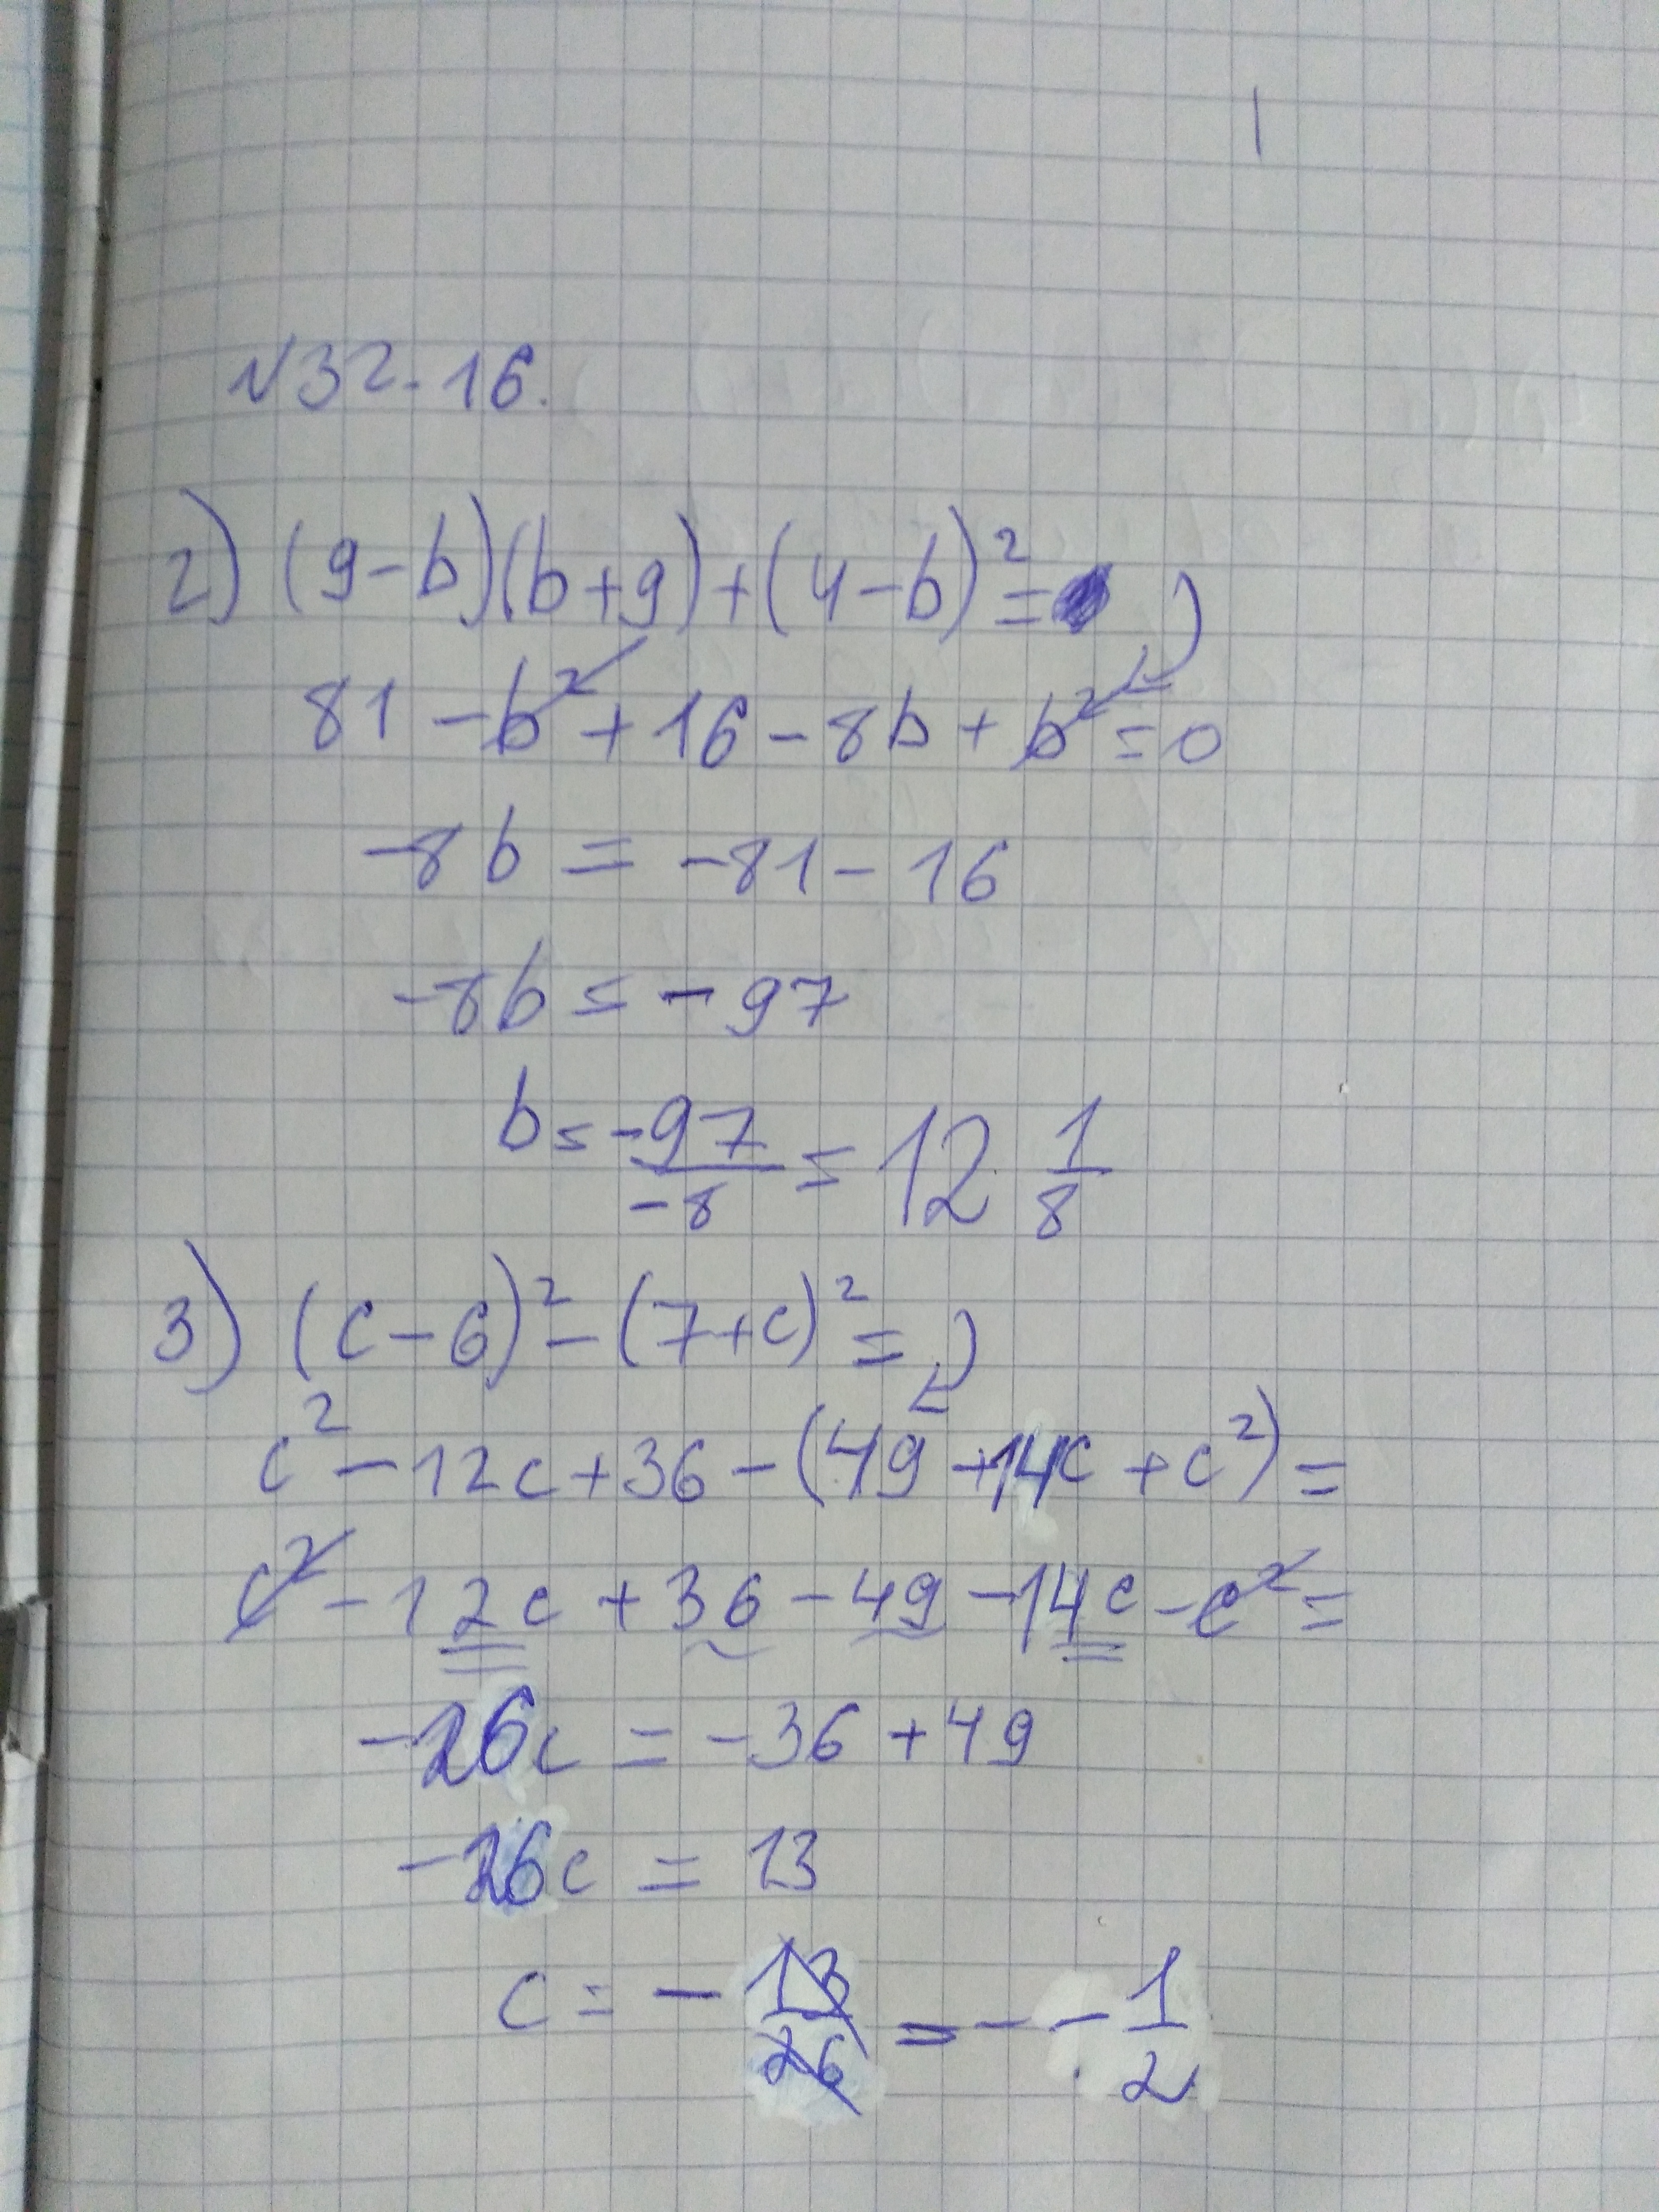 №32-16.
2) (9-b)(b+9)+(4-b)²=
81-b²+16-8b+b²=0
-8b=-81-16
-8b=-97
b=-97/-8=12 1/8
3) (c-6)²-(7+c)²=
c²-12c+36-(49+14c+c²)=
c²-12c+36-49-14c-c²=
-26c=-36+49
-26c=13
c=-13/26=--1/2